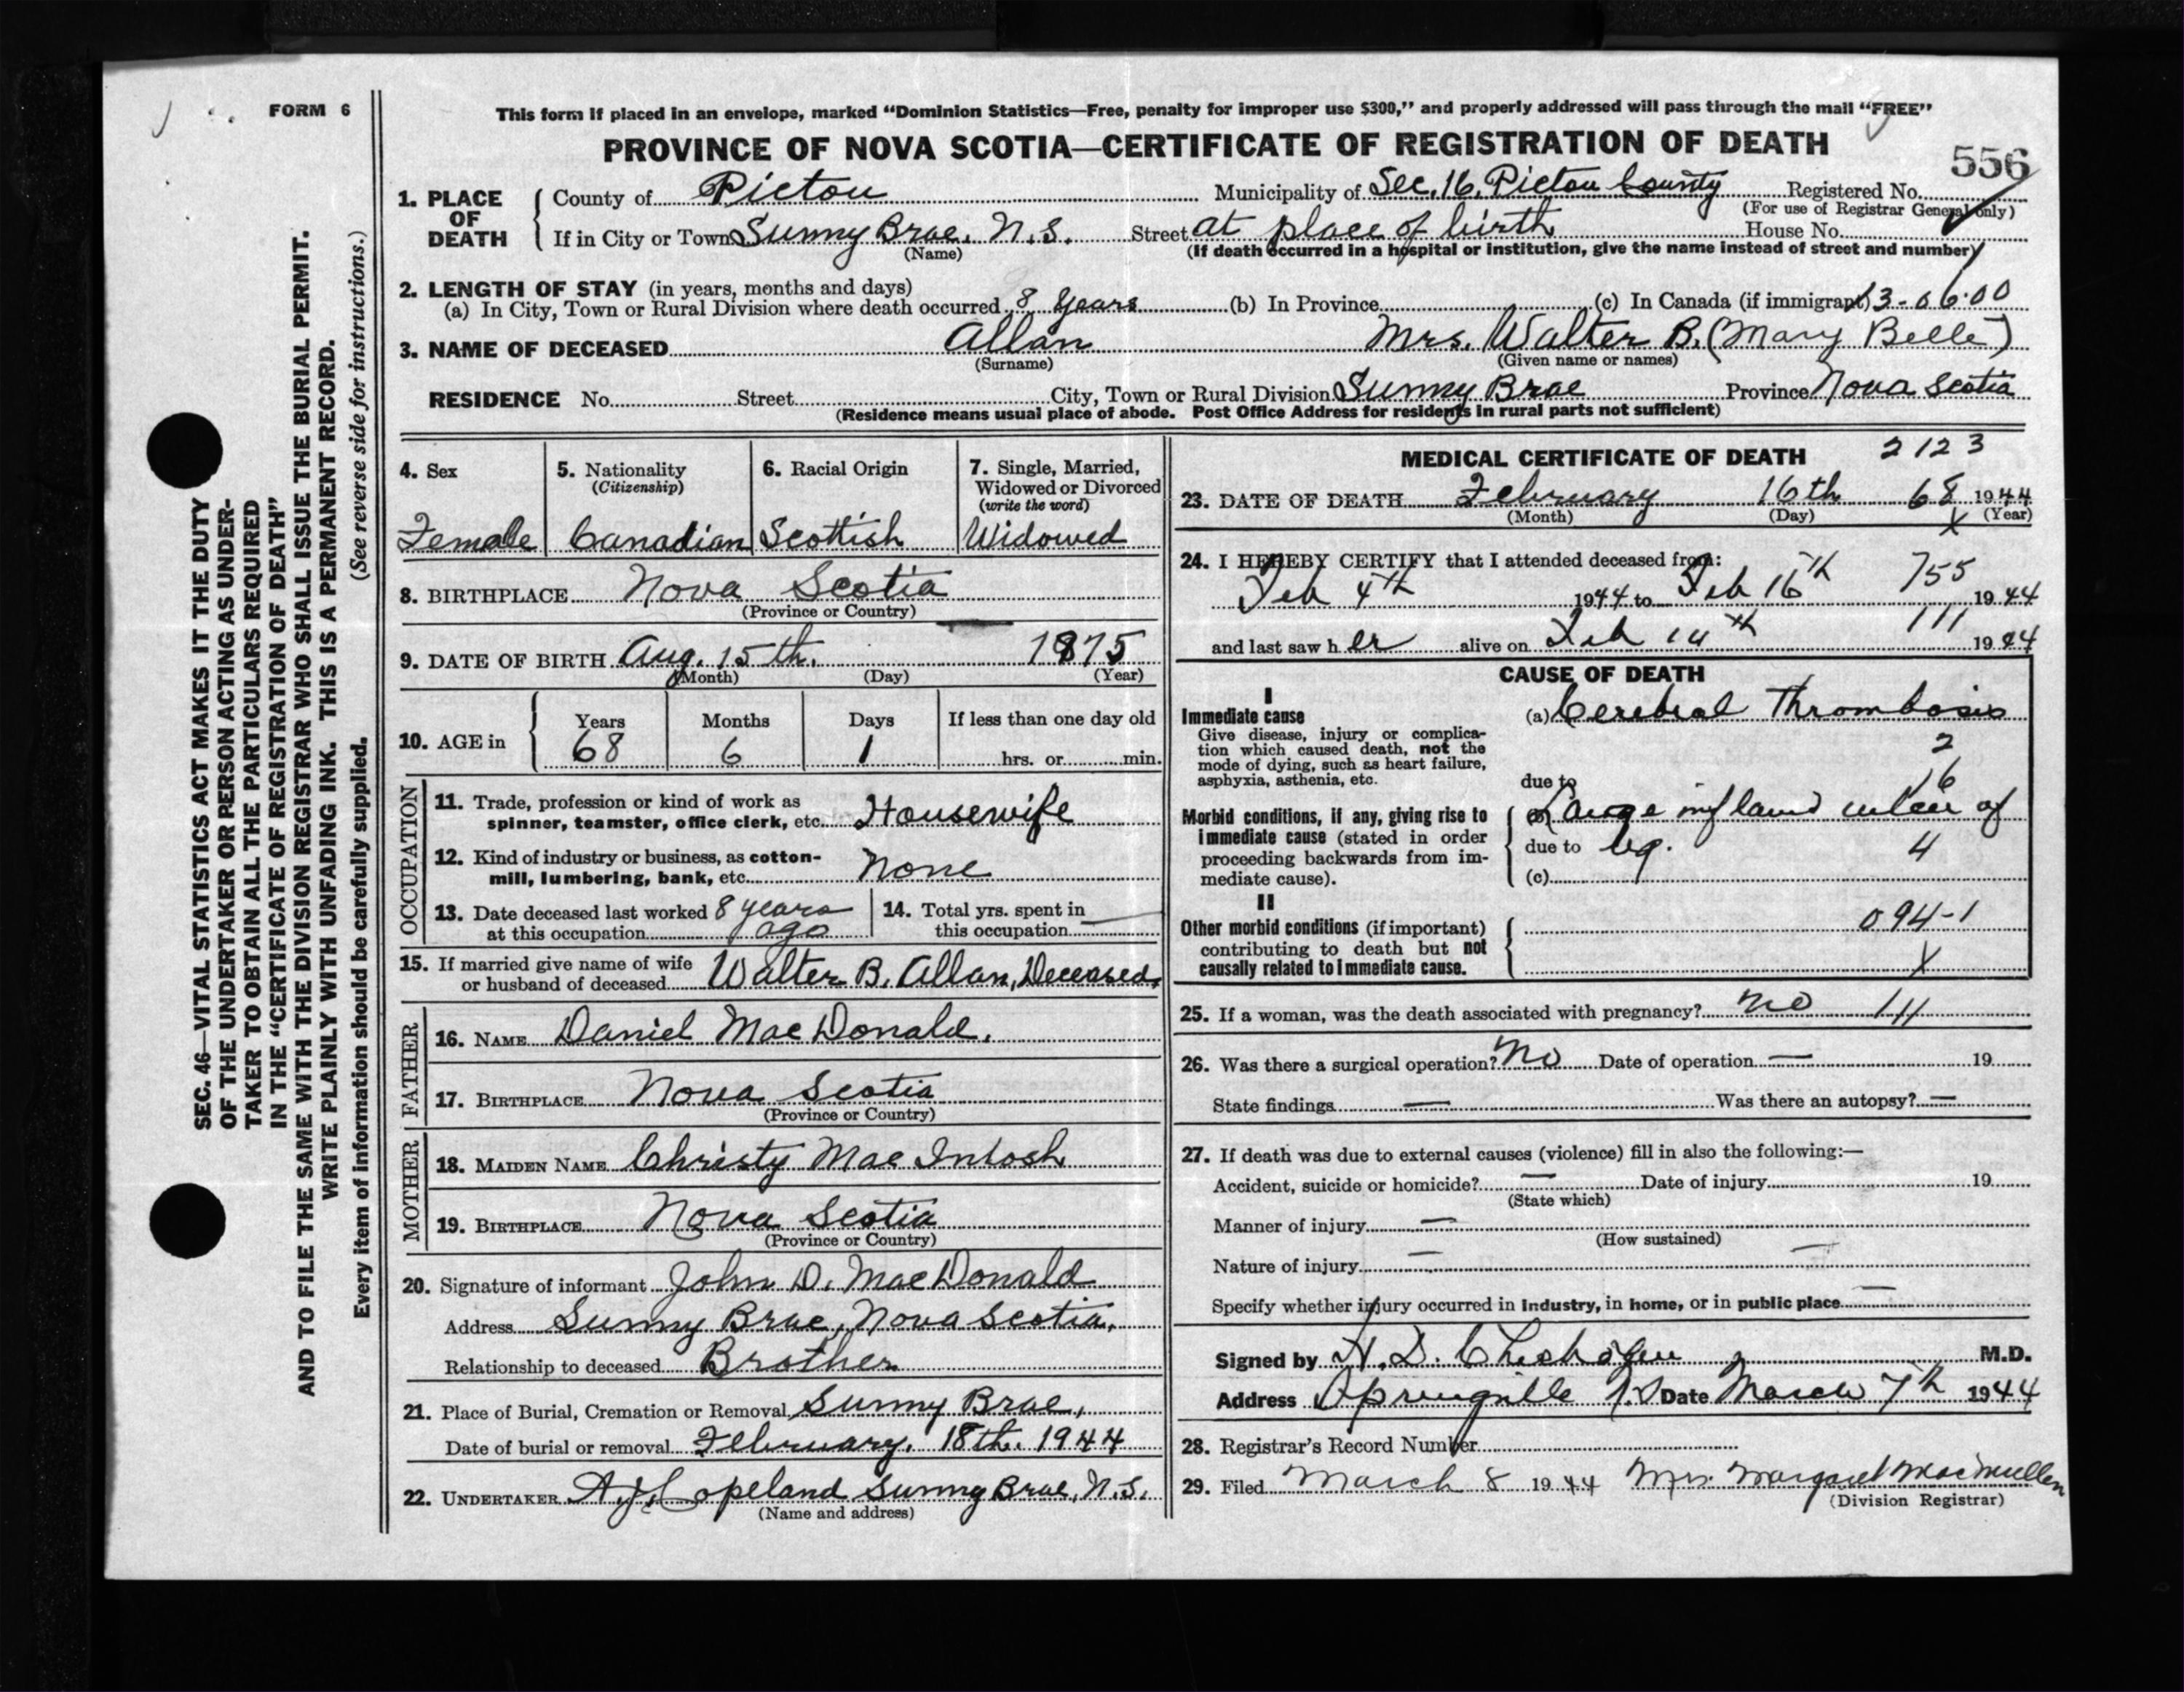 FORM 6
This form if placed in an envelope, marked "Dominion Statistics—Free, penalty for improper use $300," and properly addressed will pass through the mail "FREE"
PROVINCE OF NOVA SCOTIA—CERTIFICATE OF REGISTRATION OF DEATH
556
1. PLACE OF DEATH { County of Pictou Municipality of Sec. 16, Pictou County Registered No.
(For use of Registrar General only)
If in City or Town Sunny Brae, N.S. Street at place of birth House No.
(Name) (If death occurred in a hospital or institution, give the name instead of street and number)
2. LENGTH OF STAY (in years, months and days)
(a) In City, Town or Rural Division where death occurred 8 years (b) In Province (c) In Canada (if immigrant) 13-06.00
3. NAME OF DECEASED Allan Mrs. Walter B. (Mary Belle)
(Surname) (Given name or names)
RESIDENCE No. Street City, Town or Rural Division Sunny Brae Province Nova Scotia
(Residence means usual place of abode. Post Office Address for residents in rural parts not sufficient)
4. Sex 5. Nationality (Citizenship) 6. Racial Origin 7. Single, Married, Widowed or Divorced (write the word)
Female Canadian Scottish Widowed
8. BIRTHPLACE Nova Scotia
(Province or Country)
9. DATE OF BIRTH Aug. 15th. 1875
(Month) (Day) (Year)
10. AGE in { Years Months Days If less than one day old
68 6 1 hrs. or min.
OCCUPATION
11. Trade, profession or kind of work as
spinner, teamster, office clerk, etc. Housewife
12. Kind of industry or business, as cotton-
mill, lumbering, bank, etc. None
13. Date deceased last worked 8 years 14. Total yrs. spent in
at this occupation ago this occupation —
15. If married give name of wife
or husband of deceased Walter B. Allan, Deceased.
FATHER
16. NAME Daniel MacDonald.
17. BIRTHPLACE Nova Scotia
(Province or Country)
MOTHER
18. MAIDEN NAME Christy MacIntosh
19. BIRTHPLACE Nova Scotia
(Province or Country)
20. Signature of informant John D. MacDonald
Address Sunny Brae, Nova Scotia.
Relationship to deceased Brother
21. Place of Burial, Cremation or Removal Sunny Brae,
Date of burial or removal February. 18th. 1944
22. UNDERTAKER A.J. Copeland Sunny Brae, N.S.
(Name and address)
MEDICAL CERTIFICATE OF DEATH 2123
23. DATE OF DEATH February 16th 68 1944
(Month) (Day) X (Year)
24. I HEREBY CERTIFY that I attended deceased from:
Feb 4th 1944 to Feb 16th 755 1944
and last saw her alive on Feb 14th 111 1944
CAUSE OF DEATH
I
Immediate cause (a) Cerebral Thrombosis
Give disease, injury or complica-
tion which caused death, not the 2
mode of dying, such as heart failure,
asphyxia, asthenia, etc. due to 16
Morbid conditions, if any, giving rise to Large ulcer of
immediate cause (stated in order due to leg. 4
proceeding backwards from im-
mediate cause). (c)
II
Other morbid conditions (if important) 094-1
contributing to death but not
causally related to immediate cause. X
25. If a woman, was the death associated with pregnancy? no 111
26. Was there a surgical operation? No Date of operation — 19
State findings — Was there an autopsy? —
27. If death was due to external causes (violence) fill in also the following:—
Accident, suicide or homicide? — Date of injury 19
(State which)
Manner of injury —
(How sustained)
Nature of injury — —
Specify whether injury occurred in industry, in home, or in public place —
Signed by H. D. M.D.
Address Springville N.S Date March 7th 1944
28. Registrar's Record Number
29. Filed March 8 1944 Mrs. Margaret MacMullen
(Division Registrar)
SEC. 46—VITAL STATISTICS ACT MAKES IT THE DUTY
OF THE UNDERTAKER OR PERSON ACTING AS UNDER-
TAKER TO OBTAIN ALL THE PARTICULARS REQUIRED
IN THE "CERTIFICATE OF REGISTRATION OF DEATH"
AND TO FILE THE SAME WITH THE DIVISION REGISTRAR WHO SHALL ISSUE THE BURIAL PERMIT.
WRITE PLAINLY WITH UNFADING INK. THIS IS A PERMANENT RECORD.
Every item of information should be carefully supplied. (See reverse side for instructions.)